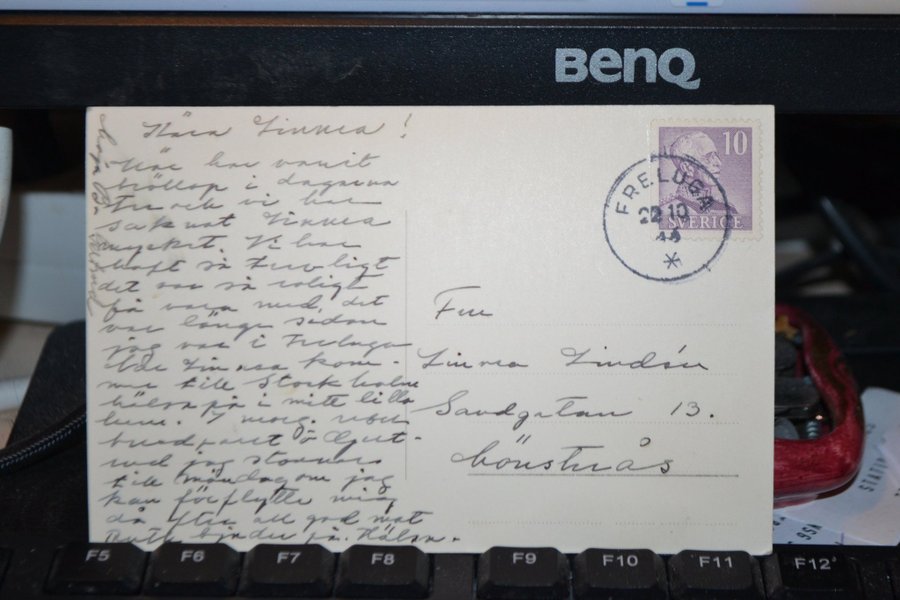 BenQ
Kära Linnea!
Här har varit
bröllop i dagarna
tre och vi har
saknat Linnea
mycket. Vi har
haft så trevligt
det var så roligt
få vara med, det
var länge sedan
jag var i Freluga
När Linnea kom-
mer till Stockholm
hälsa på i mitt lilla
hem. I morg. reser
brudparet o
jag stannar
till måndag om jag
kan förflytta mig
då efter all god mat
Ruth bjuder på. Hälsn.
10
SVERIGE
FRELUGA
22 10
44
Fru
Linnea Lindén
Sandgatan 13.
Bönstrås
F5
F6
F7
F8
F9
F10
F11
F12
STATI